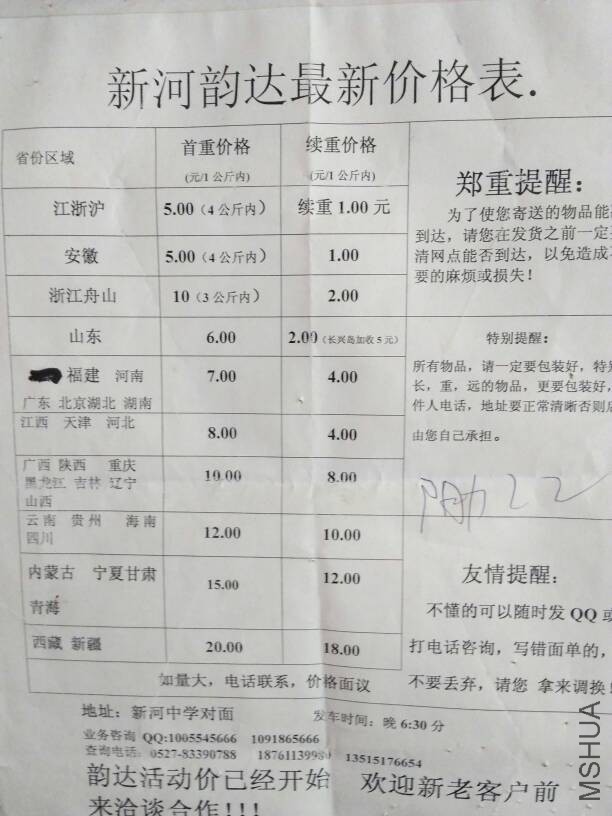 新河韵达最新价格表.
省份区域 首重价格 续重价格
(元/1 公斤内) (元/1 公斤内)
江浙沪 5.00（4 公斤内） 续重 1.00 元
安徽 5.00（4 公斤内） 1.00
浙江舟山 10（3 公斤内） 2.00
山东 6.00 2.00（长兴岛加收 5 元）
福建 河南 7.00 4.00
广东 北京湖北 湖南
江西 天津 河北 8.00 4.00
广西 陕西 重庆
黑龙江 吉林 辽宁 10.00 8.00
山西
云南 贵州 海南
四川 12.00 10.00
内蒙古 宁夏甘肃 15.00 12.00
青海
西藏 新疆 20.00 18.00
如量大，电话联系，价格面议
郑重提醒：
为了使您寄送的物品能
到达，请您在发货之前一定
清网点能否到达，以免造成
要的麻烦或损失！
特别提醒：
所有物品，请一定要包装好，特
长，重，远的物品，更要包装好，
件人电话，地址要正常清晰否则
由您自己承担。
友情提醒：
不懂的可以随时发 QQ 或
打电话咨询，写错面单的，
不要丢弃，请您 拿来调换
地址：新河中学对面 发车时间：晚 6:30 分
业务咨询 QQ:1005545666 1091865666
查询电话：0527-83390788 18761139980 13515176654
韵达活动价已经开始 欢迎新老客户前
来洽谈合作！！！
MSHUA